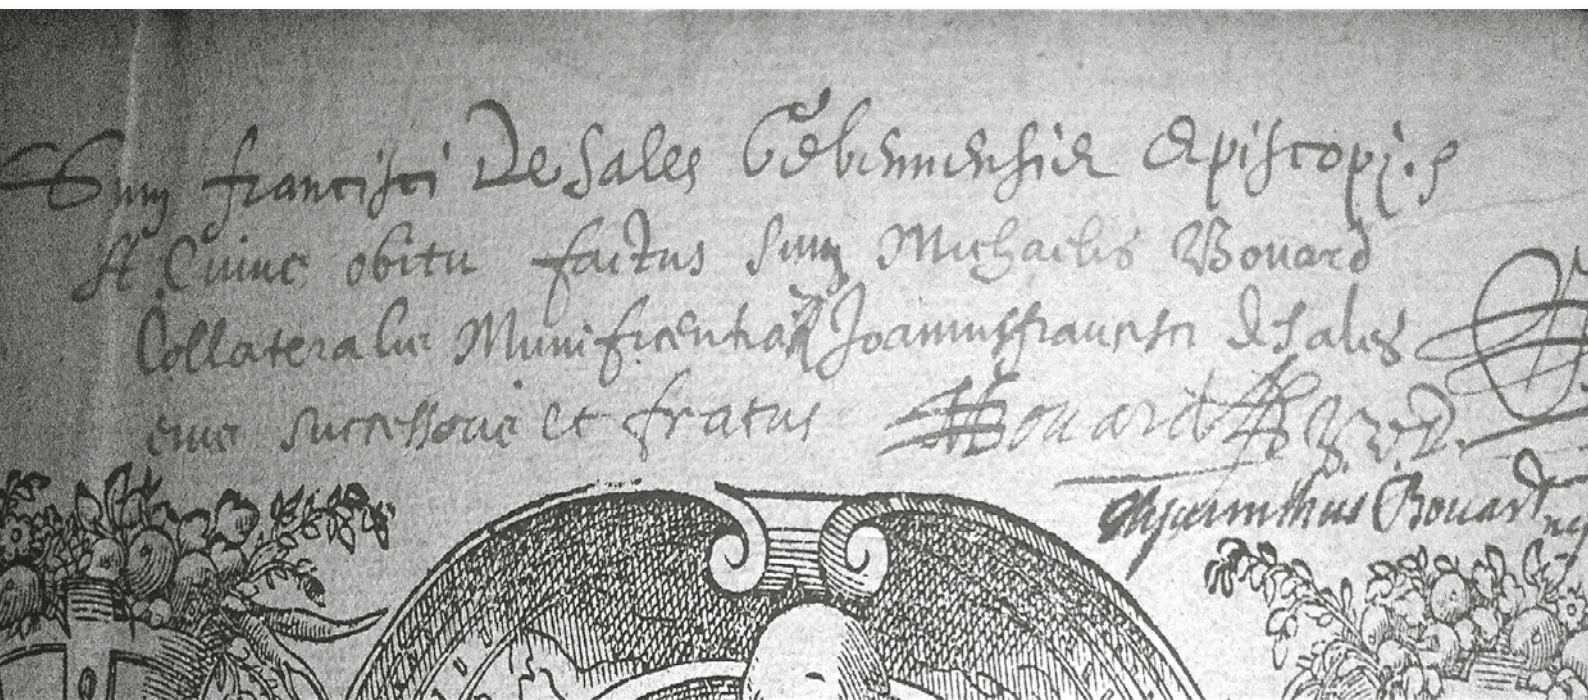 Sum francisci De Sales Gebennensis Episcopi
A Cuius obitu factus sum Michaelis Bouard
Collateralis Munificentia Joannis francisci de Sales
eius successoris et fratris Bouard
Hyacinthus Bouard